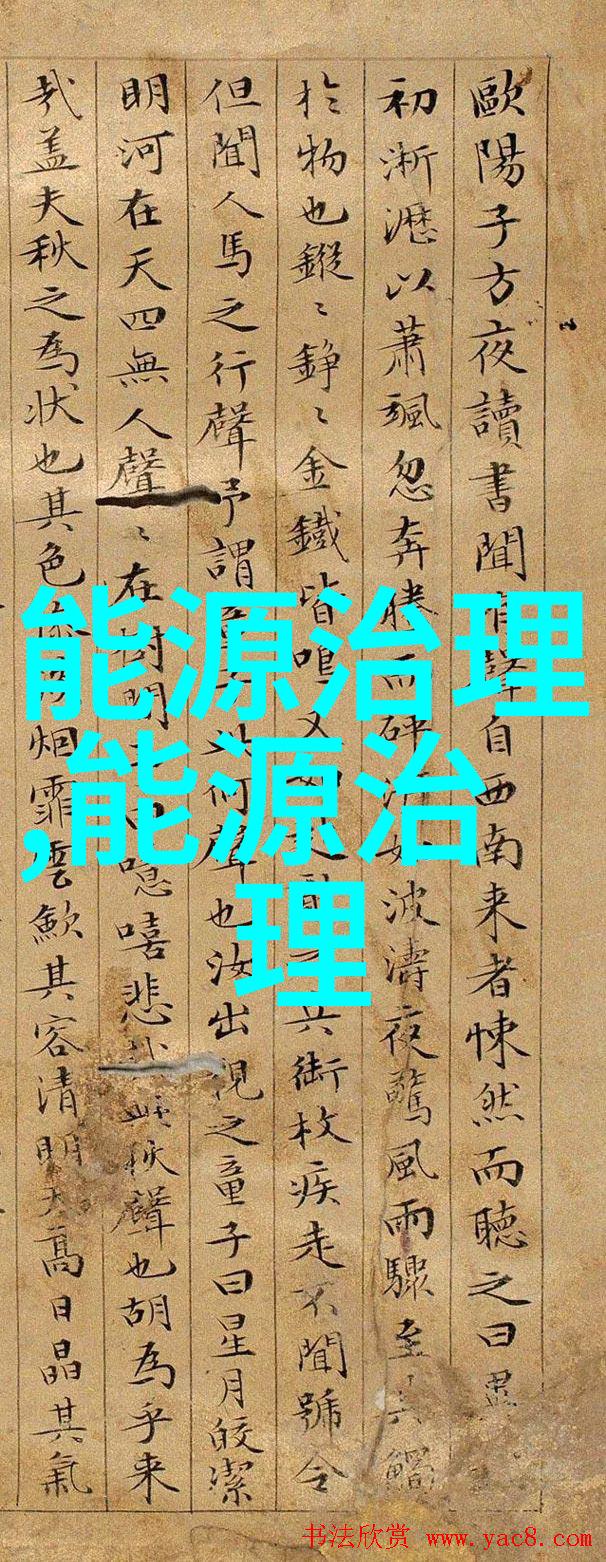 歐陽子方夜讀書聞有聲自西南来者悚然而聽之曰異
初淅瀝以蕭颯忽奔騰而砰湃如波濤夜驚風雨驟至其觸
扵物也鏦〻錚〻金鐵皆鳴又如兵銜枚疾走不聞號令
但聞人馬之行聲予謂童子此何聲也汝出視之童子曰星月皎潔
明河在天四無人聲〻在樹間曰噫嘻悲哉秋聲也胡為乎来
哉盖夫秋之為狀也其色慘淡烟霏雲歛其容清明天高日晶其氣
能源治理
,能源治
理
书法欣赏 www.yac8.com